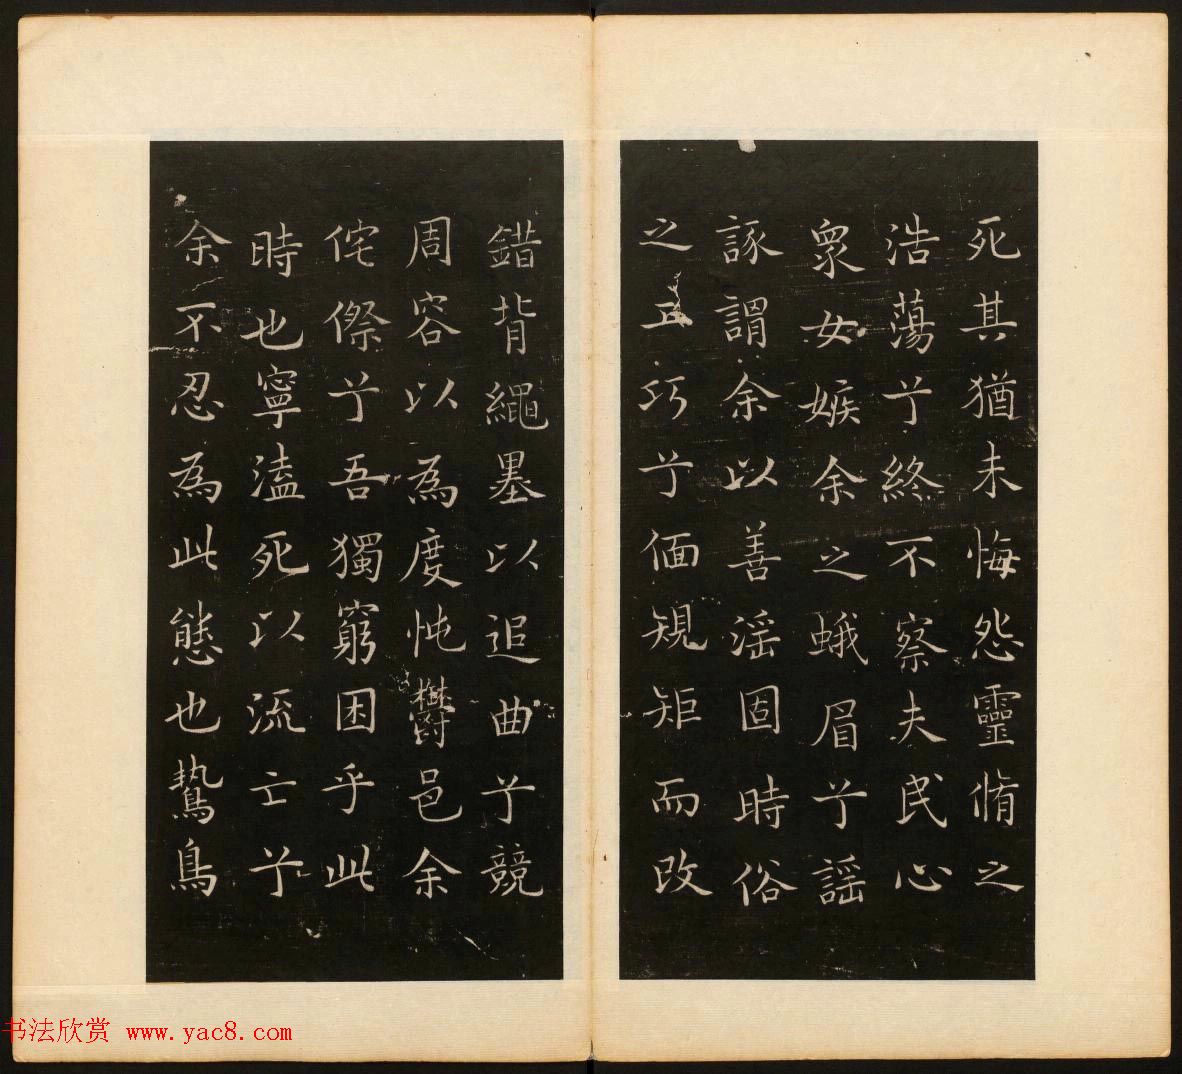 死其猶未悔怨靈脩之
浩蕩兮終不察夫民心
衆女嫉余之蛾眉兮謠
諑謂余以善淫固時俗
之工巧兮偭規矩而改
錯背繩墨以追曲兮競
周容以為度忳鬱邑余
侘傺兮吾獨窮困乎此
時也寧溘死以流亡兮
余不忍為此態也鷙鳥
书法欣赏 www.yac8.com